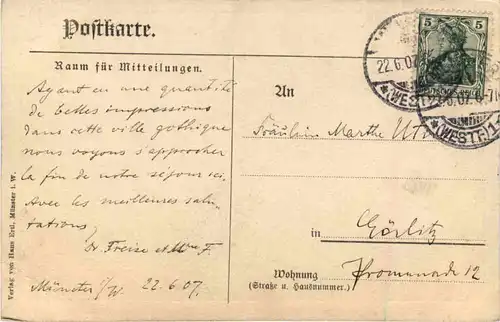 Postkarte.
Raum für Mitteilungen.
Ayant eu une quantité
de belles impressions
dans cette ville gothique
nous voyons s'approcher
la fin de notre séjour ici.
Avec les meilleures salu-
tations,
Dr. Freise et Mme F.
Münster i/W. 22.6.07.
Verlag von Hans Ertl, Münster i. W.
5
22.6.07
*(WESTF.)
An
Fräulein Marthe
in Görlitz
Wohnung Promenade 12
(Straße u. Hausnummer.)